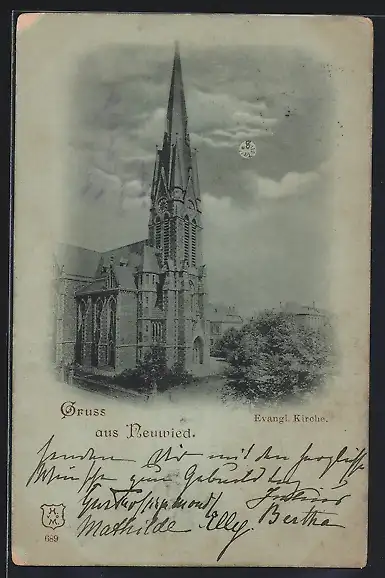 Gruss
aus Neuwied.
Evangl. Kirche.
senden Dir mit den herzlichsten
Wünschen zum Geburtstag
Julius
Mathilde Elly Bertha
H.
v. M.
689